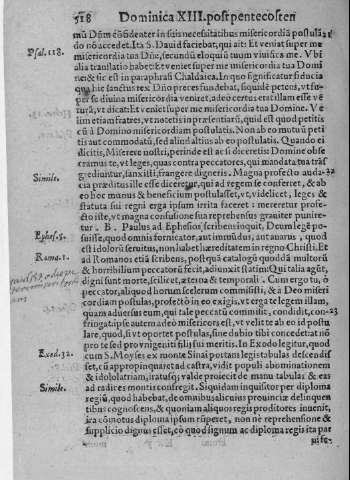 518 Dominica XIII. post pentecosten
mũ Dũm cõfidenter in istis necessitatibus misericordiã postulã
Psal. 118. do nõ accedet. Ita S. Dauid faciebat, qui ait: Et veniat super me
misericordia tua Dñe, secundũ eloquiũ tuum viuifica me. Vbi
alia translatio habet: Et veniet super me misericordia tua Domi
ne: & sic est in paraphrasi Chaldaica. In quo significatur fiducia
qua hic sanctus rex Dño preces fundebat, siquidẽ petens, vt su-
per se diuina misericordia veniret, adeo certus erat illam esse vẽ
turã, vt dicat: Et veniet super me misericordia tua Domine. Ve
lim etiam fratres, vt notetis in præsentiarũ, quid est quod petitis
cũ à Domino misericordiam postulatis. Non ab eo mutuũ peti
tis aut commodatũ, sed aliud altius ab eo postulatis. Quando ei
dicitis, Miserere nostri, perinde est ac si diceretis: Domine obse
cramus te, vt leges, quas contra peccatores, qui mandata tua trãs
grediuntur, sanxisti, frangere digneris. Magna profecto auda- 32
Simile. cia præditus ille esse diceretur, qui ad regem se conferret, & ab
eo hoc munus & beneficium postulasset, vt, videlicet, leges &
statuta sui regni erga ipsum irrita faceret: mereretur profe-
cto iste, vt magna confusione sua reprehensus grauiter punire
tur. B. Paulus ad Ephesios scribens inquit, Deum legẽ po-
Ephes. 5. suisse, quod omnis fornicator, aut immũdus, aut auarus, quod
est idolorũ seruitus, non habet hæreditatem in regno Christi. Et
Roma. 1. ad Romanos etiã scribens, postquã catalogũ quoddã multorũ
& horribilium peccatorũ fecit, adiunxit statim: Qui talia agũt,
digni sunt morte, scilicet, æterna & temporali. Cum ergo tu, ò
peccator, aliquod horum scelerum commisisti, & à Deo miseri
cordiam postulas, profectò in eo exigis, vt erga te legem illam,
quam aduersus eum, qui tale peccatũ commisit, condidit, con- 33
fringat: ipse autem adeo misericors est, vt velit te ab eo id postu
lare, quod, si vt oportet postulas, sine dubio tibi concedat nõ
pro te sed pro vnigeniti filij sui meritis. In Exodo legitur, quod
Exod. 32. cum S. Moyses ex monte Sinai portans legis tabulas descendis
set, cũ appropinquaret ad castra, vidit populi abominationem
& idololatriam, iratusq; valde proiecit de manu tabulas & eas
Simile. ad radices montis confregit. Siquidam inquisitor per diploma
regiũ, quod habebat, de omnibus alicuius prouinciæ delinquen
tibus cognoscens, & quoniam aliquos regis proditores inuenit,
ira cõmotus diploma ipsum rũperet, non nè reprehensione &
supplicio dignus esset, eò quod signum ac diploma regis ita par